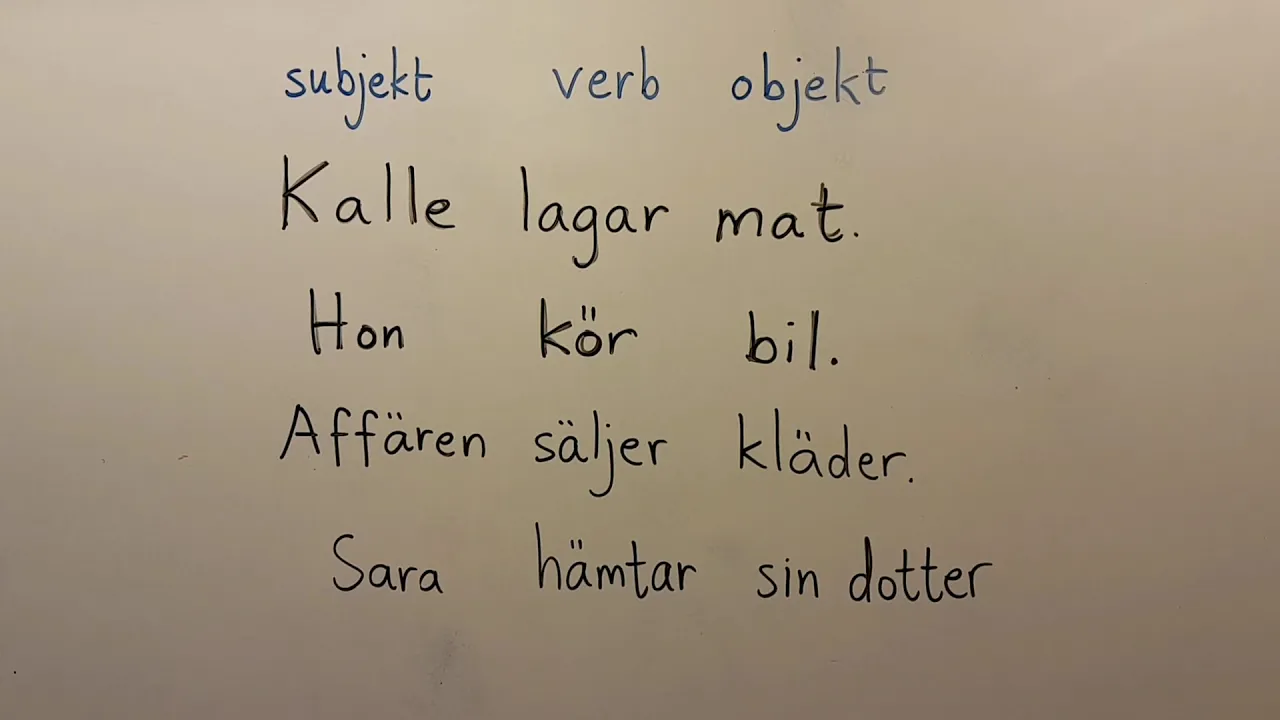 subjekt verb objekt
Kalle lagar mat.
Hon kör bil.
Affären säljer kläder.
Sara hämtar sin dotter